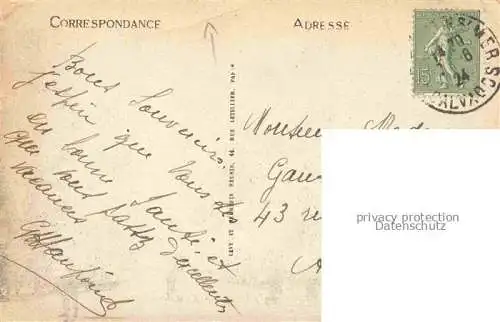 CORRESPONDANCE
ADRESSE
Bons Souvenirs.
J'espère que vous êtes
en bonne santé et
que vous passez d'excellentes
vacances
LEVY ET NEURDEIN REUNIS, 44, RUE LETELLIER, PARIS
Monsieur Mada
Gau
43 r
A
S/MER
6
24
CALVADOS
15
privacy protection
Datenschutz